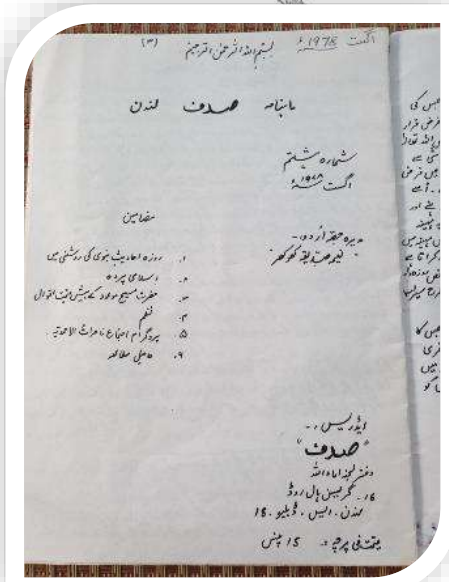 اگست 1978ء
(۳)
بسم اللہ الرحمٰن الرحیم
ماہنامہ صدف لندن
شمارہ ہشتم
اگست ۱۹۷۸ء
مضامین
مدیرہ حصہ اردو۔
صدیقہ کھوکھر
۱۔ روزہ احادیث نبوی کی روشنی میں
۲۔ اسلامی پردہ
۳۔ حضرت مسیح موعود کے بیش قیمت اقوال
۴۔ نظم
۵۔ پروگرام اجتماع ناصرات الاحمدیہ
۶۔ مطالعہ
ایڈریس۔
"صدف"
دفتر لجنہ اماءاللہ
16۔ گریسن ہال روڈ
لندن۔ ایس۔ ڈبلیو۔ 18
قیمت فی پرچہ۔ 15 پنس